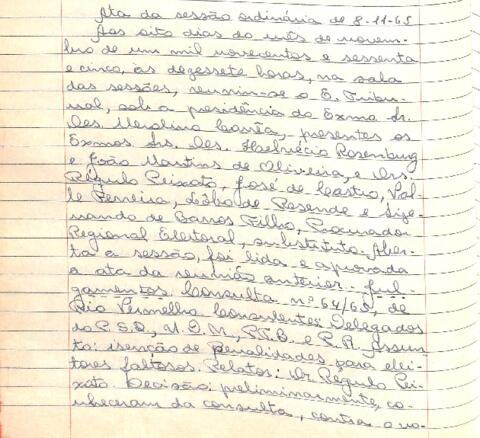 Ata da sessão ordinária de 8-11-65
Aos oito dias do mês de novem-
bro de um mil novecentos e sessenta
e cinco, às dezessete horas, na sala
das sessões, reuniu-se o E. Tribu-
nal, sob a presidência do Exmo Sr.
Des. Merolino Corrêa, presentes os
Exmos Srs. Des. Helvécio Rosenburg
e João Martins de Oliveira, e Drs.
Régulo Peixoto, José de Castro, Val-
le Ferreira, Lôbo de Resende e Size-
nando de Barros Filho, Procurador
Regional Eleitoral, substituto. Aber-
ta a sessão, foi lida e aprovada
a ata da reunião anterior. Jul-
gamentos Consulta nº 64/65, de
Rio Vermelho Consulentes: Delegados
do P.S.D., U.D.N., P.T.B. e P.R. Assun-
to: isenção de penalidades para elei-
tores faltosos. Relator: Dr Régulo Pei-
xoto. Decisão: preliminarmente, co-
nheceram da consulta, contra o vo-